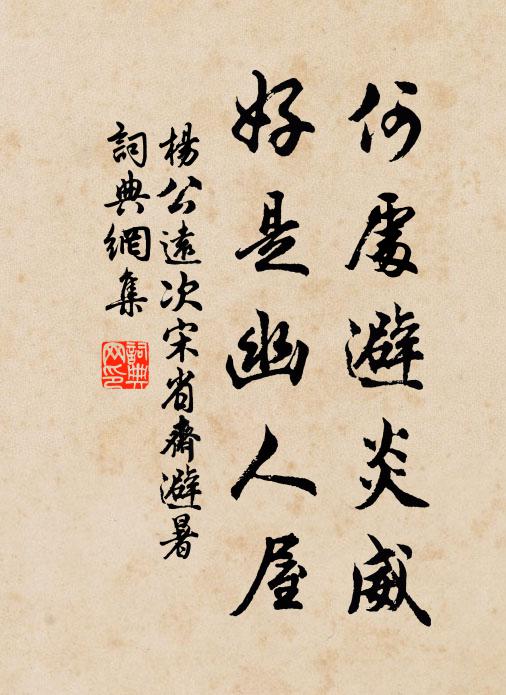 何處避炎威
好是幽人屋
楊公遠次宋省齋避暑
詞典網集
詞典網印